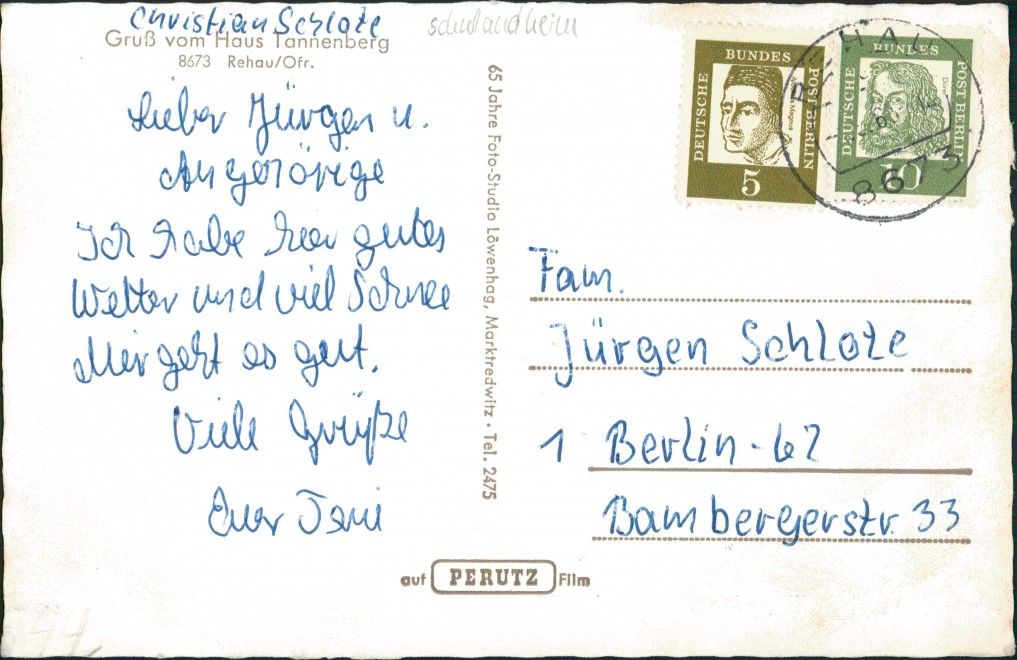 Christian Schlote
schullandheim
Gruß vom Haus Tannenberg
8673 Rehau/Ofr.
Lieber Jürgen u.
Angehörige
Ich habe hier gutes
Wetter und viel Schnee
Mir geht es gut.
Viele Grüße
Euer
65 Jahre Foto-Studio Löwenhag, Marktredwitz · Tel. 2475
DEUTSCHE BUNDES POST BERLIN
Albertus Magnus
5
DEUTSCHE BUNDES POST BERLIN
10
REHAU
8673
Fam.
Jürgen Schlote
1 Berlin-62
Bambergerstr. 33
auf PERUTZ Film